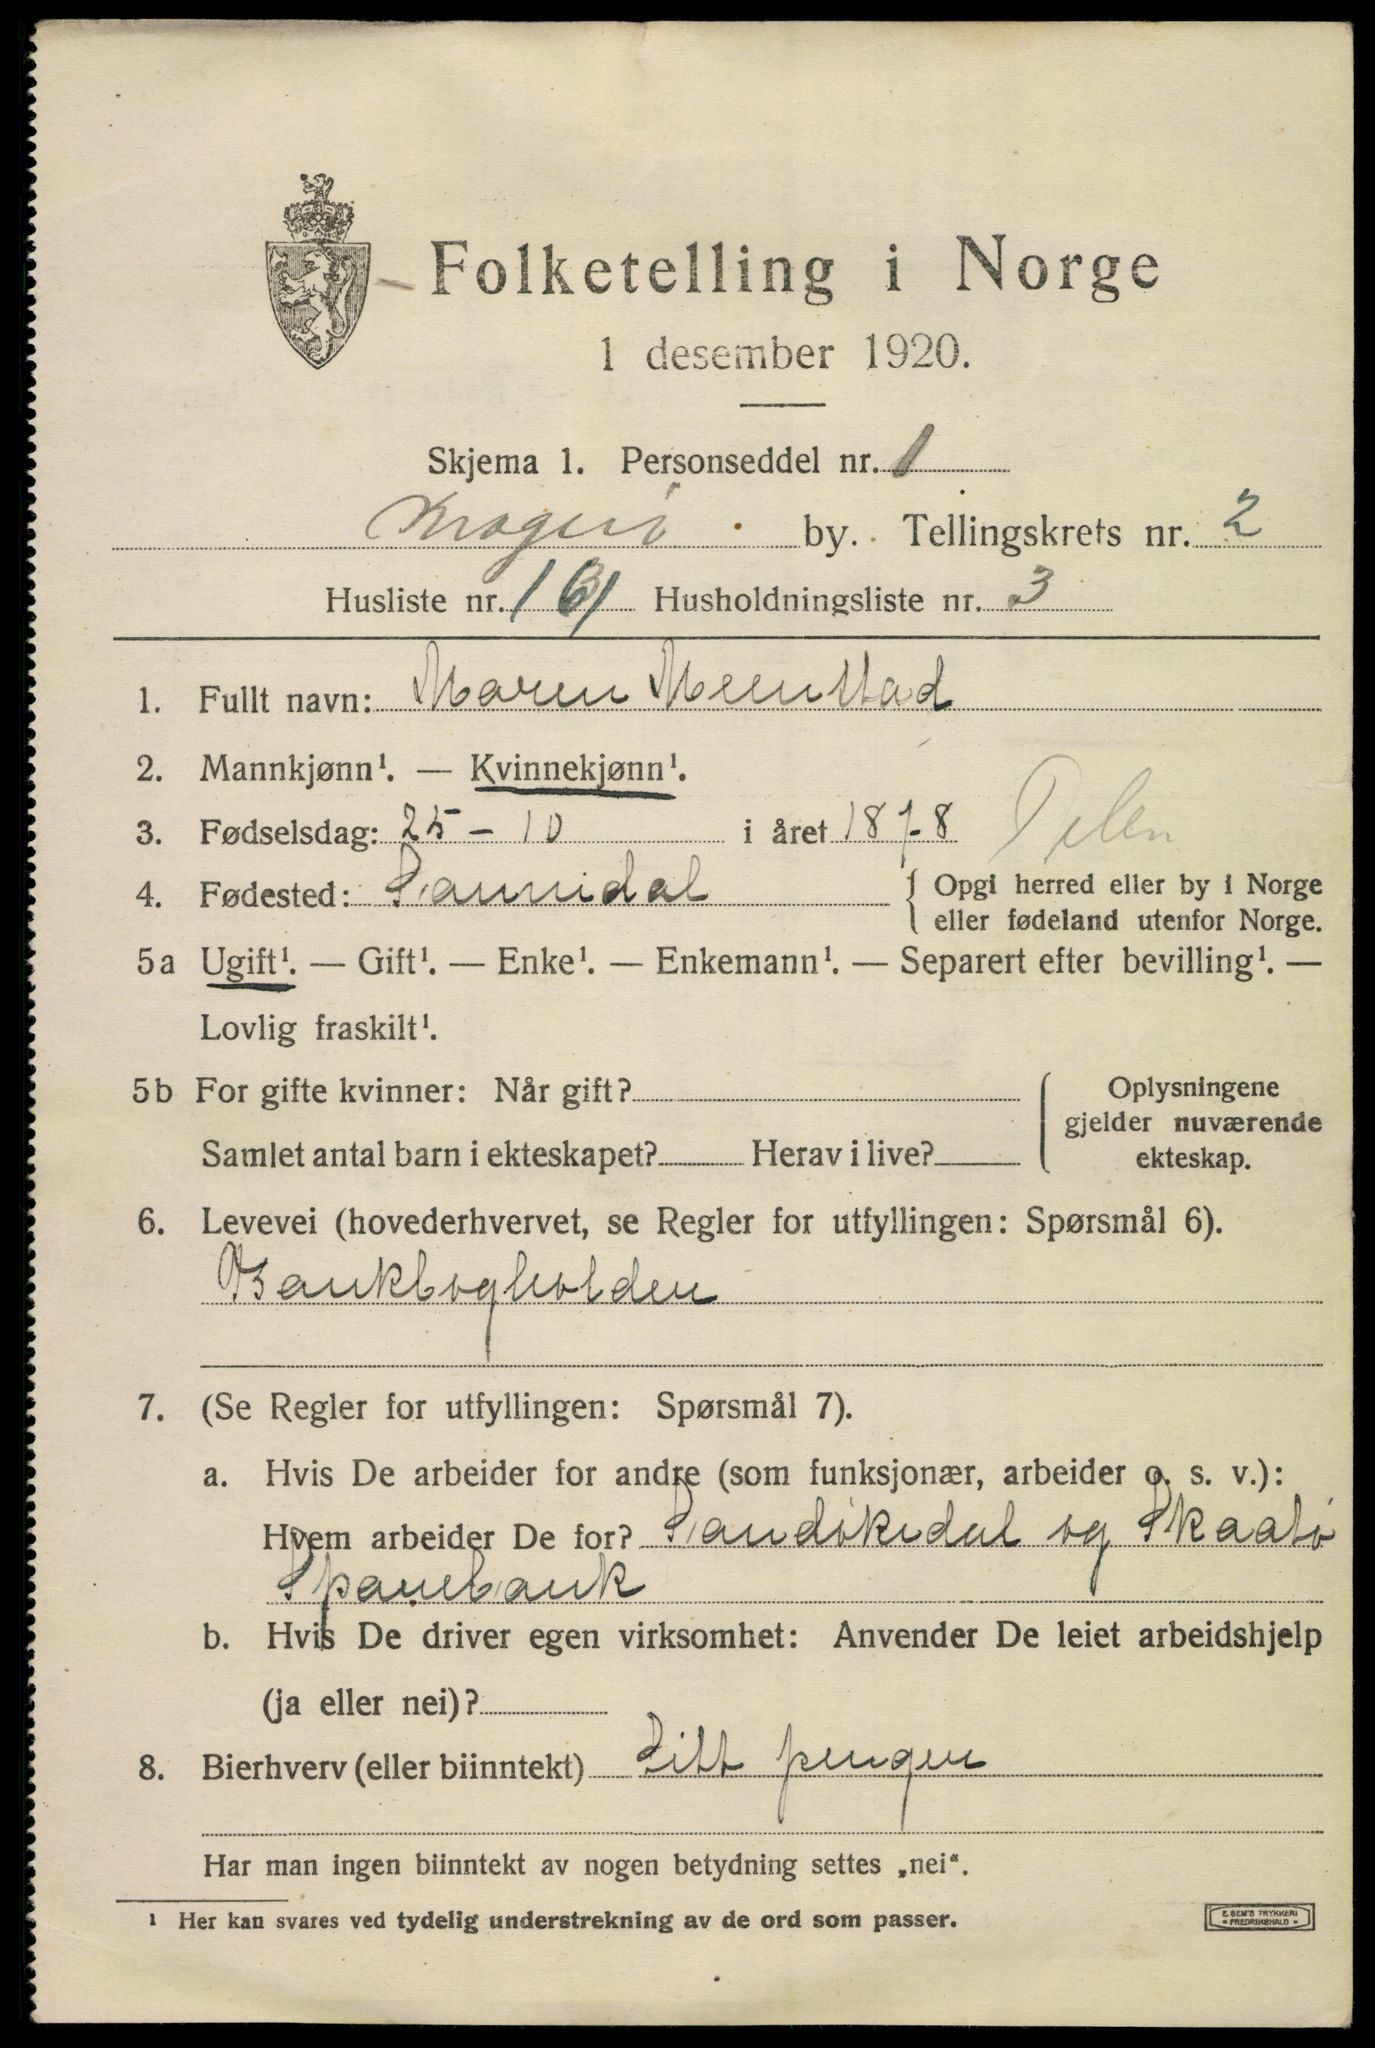 Folketelling i Norge
1 desember 1920.
Skjema 1. Personseddel nr. 1
Kragerö by. Tellingskrets nr. 2
Husliste nr. Husholdningsliste nr. 3
1. Fullt navn: Maren Menstad
2. Mannkjønn¹. — Kvinnekjønn¹.
3. Fødselsdag: 25 – 10 i året 1878
4. Fødested: Sannidal { Opgi herred eller by i Norge
eller fødeland utenfor Norge.
5a Ugift¹. — Gift¹. — Enke¹. — Enkemann¹. — Separert efter bevilling¹. —
Lovlig fraskilt¹.
5b For gifte kvinner: Når gift? { Oplysningene
gjelder nuværende
Samlet antal barn i ekteskapet? Herav i live? ekteskap.
6. Levevei (hovederhvervet, se Regler for utfyllingen: Spørsmål 6).
Bankbogholder
7. (Se Regler for utfyllingen: Spørsmål 7).
a. Hvis De arbeider for andre (som funksjonær, arbeider o. s. v.):
Hvem arbeider De for? Sandökedal og Skaatö
Sparebank
b. Hvis De driver egen virksomhet: Anvender De leiet arbeidshjelp
(ja eller nei)?
8. Bierhverv (eller biinntekt) Litt penger
Har man ingen biinntekt av nogen betydning settes „nei“.
¹ Her kan svares ved tydelig understrekning av de ord som passer.
E. SEM'S TRYKKERI
FREDRIKSHALD